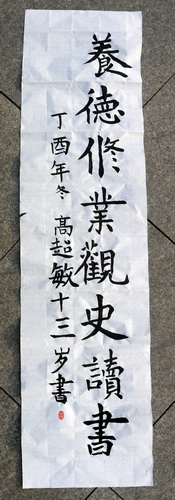 養德修業觀史讀書
丁酉年冬 高超敏十三岁書